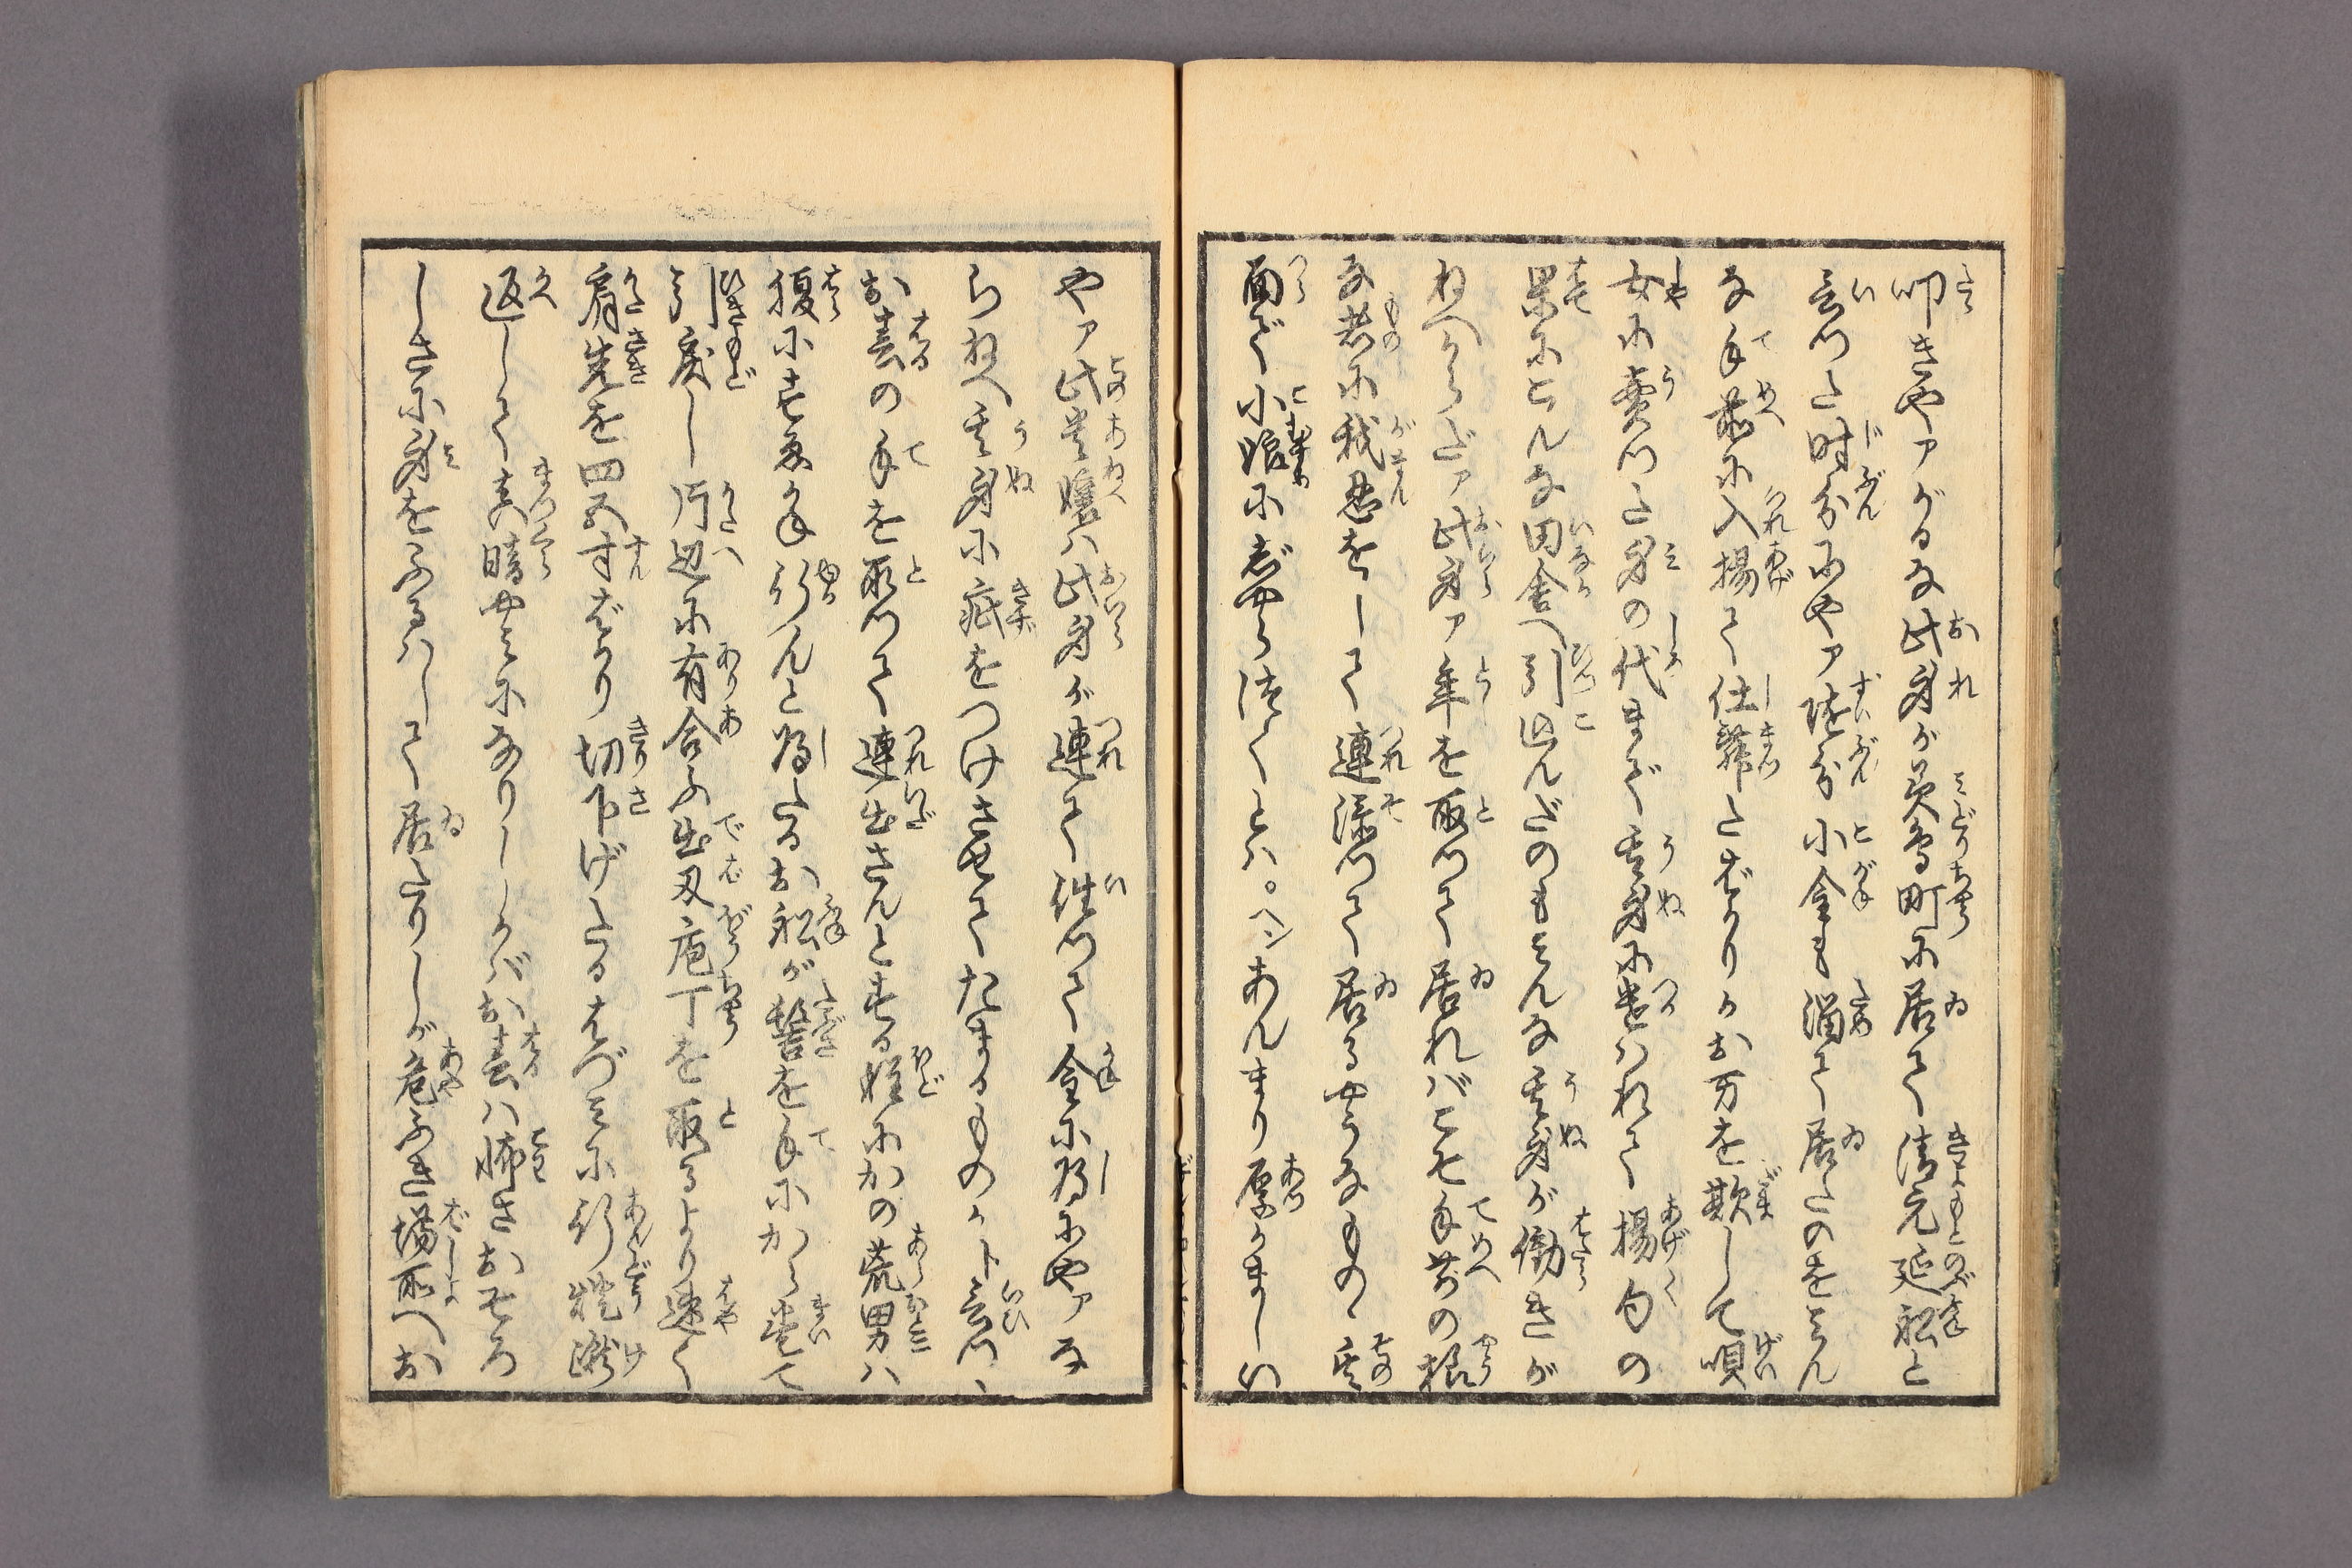 叩きやアがるな此身が美鳥町に居て清元延松と
言つた時分にやア随分小金も溜て居たのをそん
な手前に入揚て仕舞たばかりかお万を欺して唄
女に売つた身の代まで其身に遣はれて揚句の
果にとんな田舎へ引込んだのもそんな其身が働きが
ねへからだア此身ア年を取つて居ればこそ手前の様
な者に我慢をして連添つて居るやうなものゝ其
面で小娘にじやら付くとは。ヘンあんまり厚かましい
やア此姉嬢は此身が連て往つて金に為にやアな
らねへ其身に疵をつけさせてたまるものかト言つゝ
お春の手を取つて連出さんとする程にかの荒男は
腹に据兼行んと為たるお松が髻を手にから巻て
引戻し片辺に有合ふ出刃庖丁を取るより速く
肩先を四五寸ばかり切下げたるはづみに行灯蹴
返して真暗やみになりしかばお春は怖さおそろ
しさに身をふるはして居たりしが危ふき場所へお